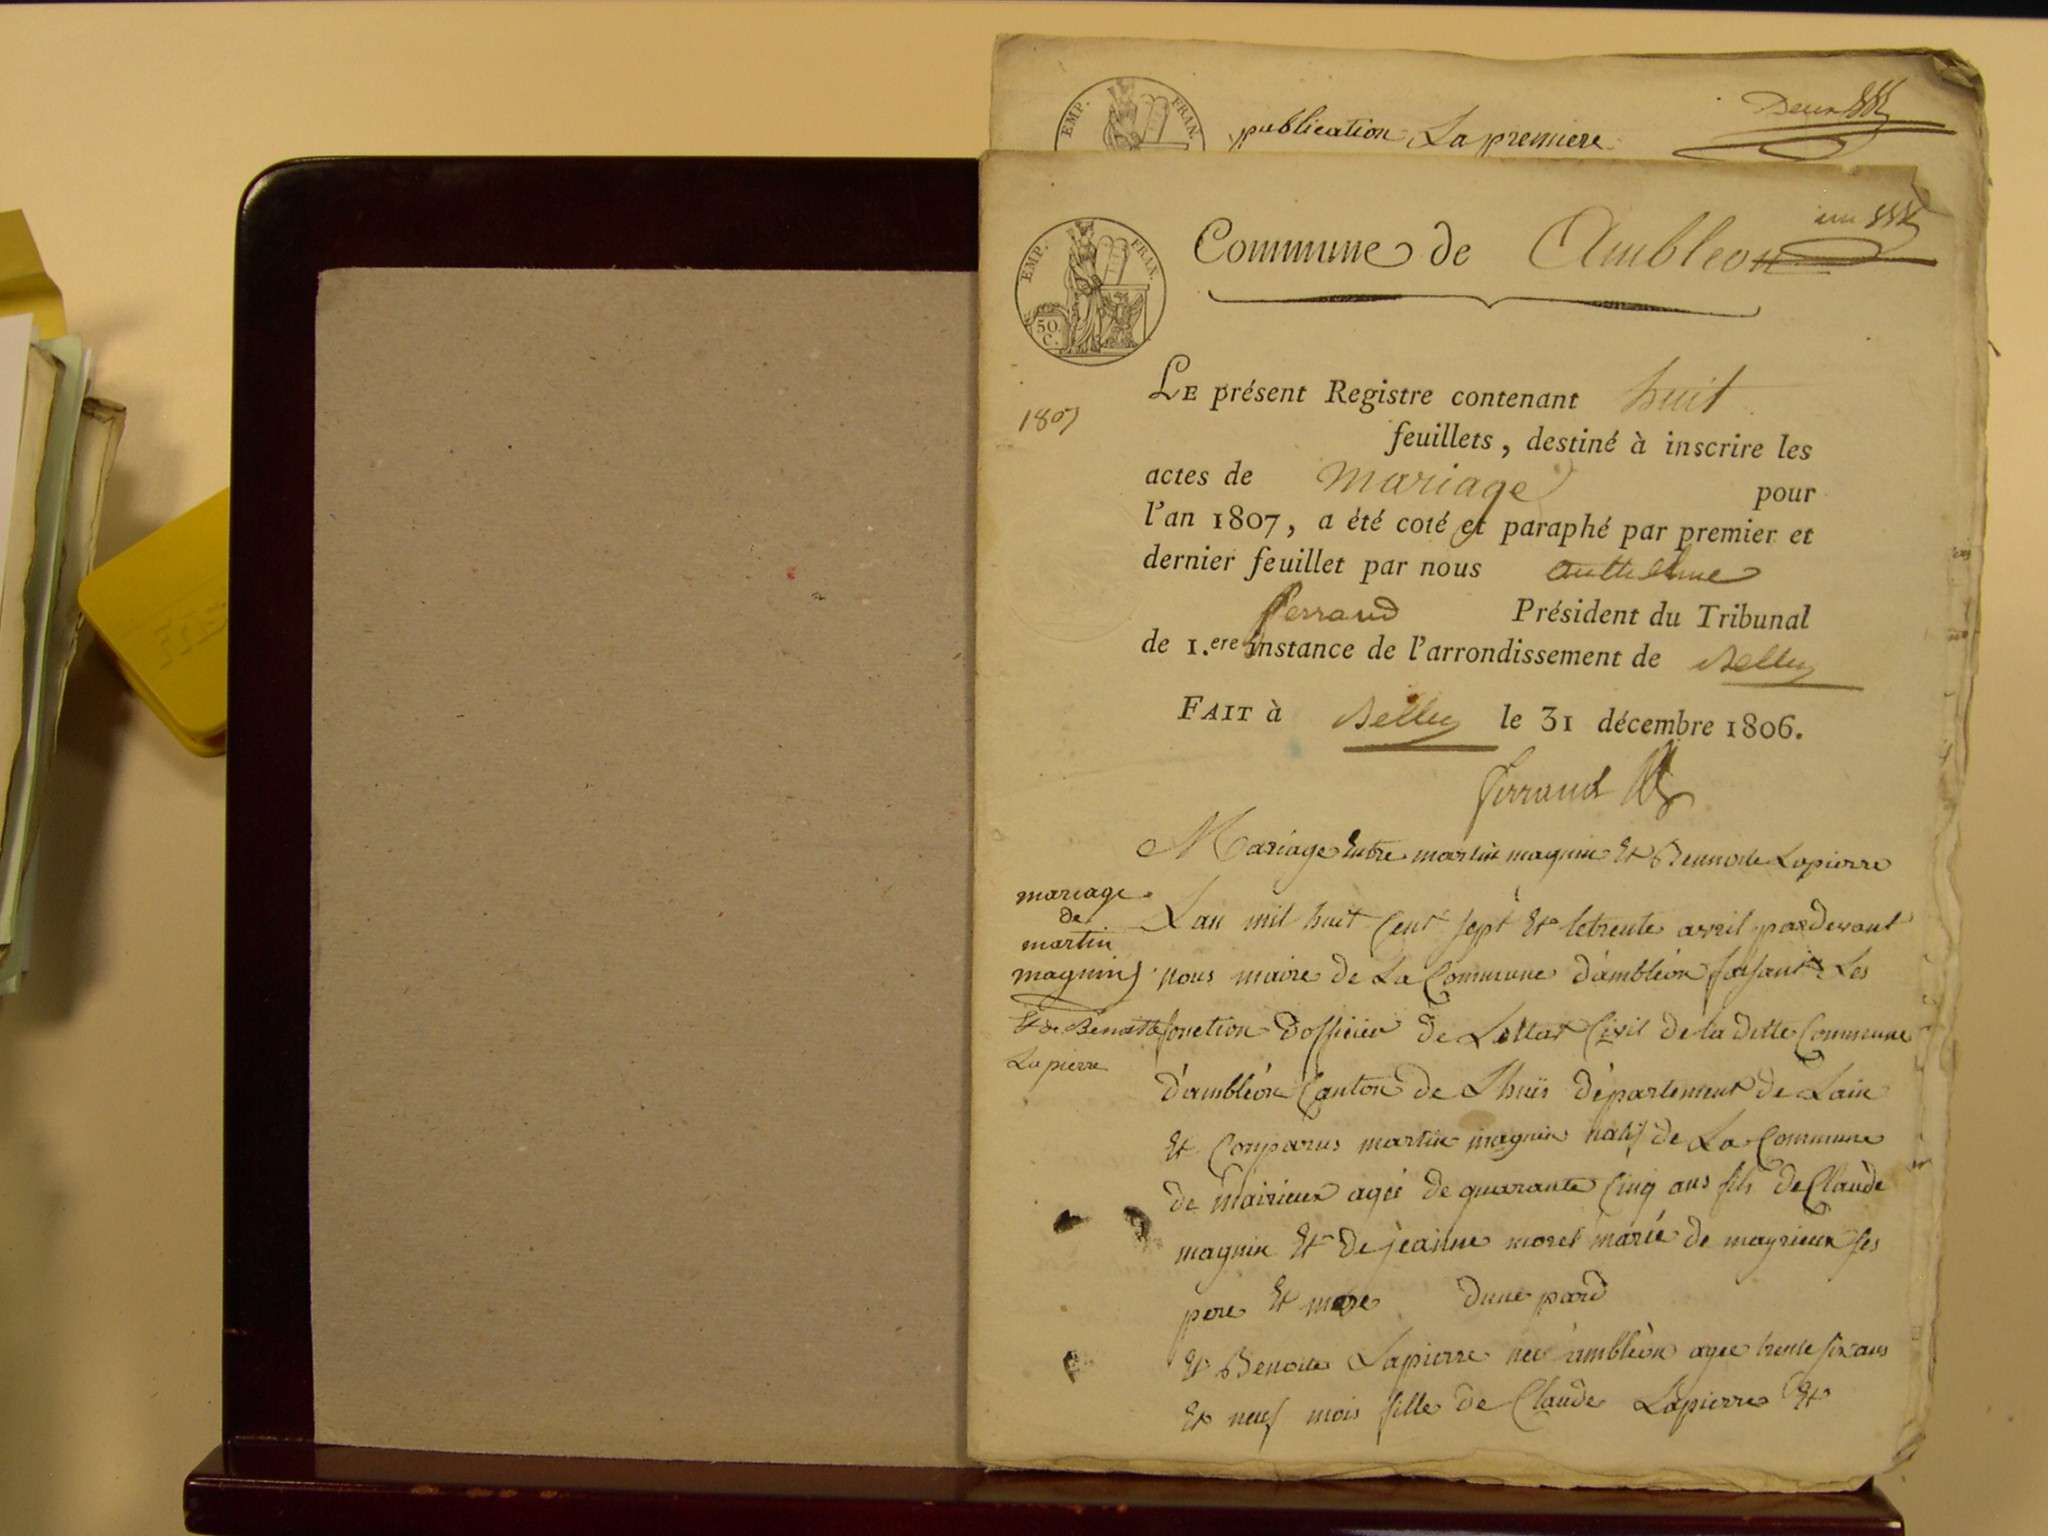 Deux
EMP. FRAN.
publication La premiere
un
EMP. FRAN.
50 C.
Commune de Ambleon
1807
LE présent Registre contenant huit
feuillets, destiné à inscrire les
actes de mariage pour
l'an 1807, a été coté et paraphé par premier et
dernier feuillet par nous anthelme
ferrand Président du Tribunal
de 1.ere instance de l'arrondissement de Belley
FAIT à Belley le 31 décembre 1806.
ferrand
Mariage Entre martin magnin Et Benoite Lapierre
mariage
de
martin
magnin
Et de Benoitte
Lapierre
Lan mil huit Cent sept Et letrente avril pardevant
nous maire de La Commune d'ambléon faisant Les
fonction d'officier de Lettat Civil de la ditte Commune
d'ambléon Canton de Lhuis département de Lain
Et Comparus martin magnin natif de La Commune
de mairieux agée de quarante Cinq ans fils de Claude
magnin Et de jeanne morel marié de mayrieux ses
pere Et mere dune pard
Et Benoite Lapierre née ambléon agee trente six ans
Et neuf mois fille de Claude Lapierre Et